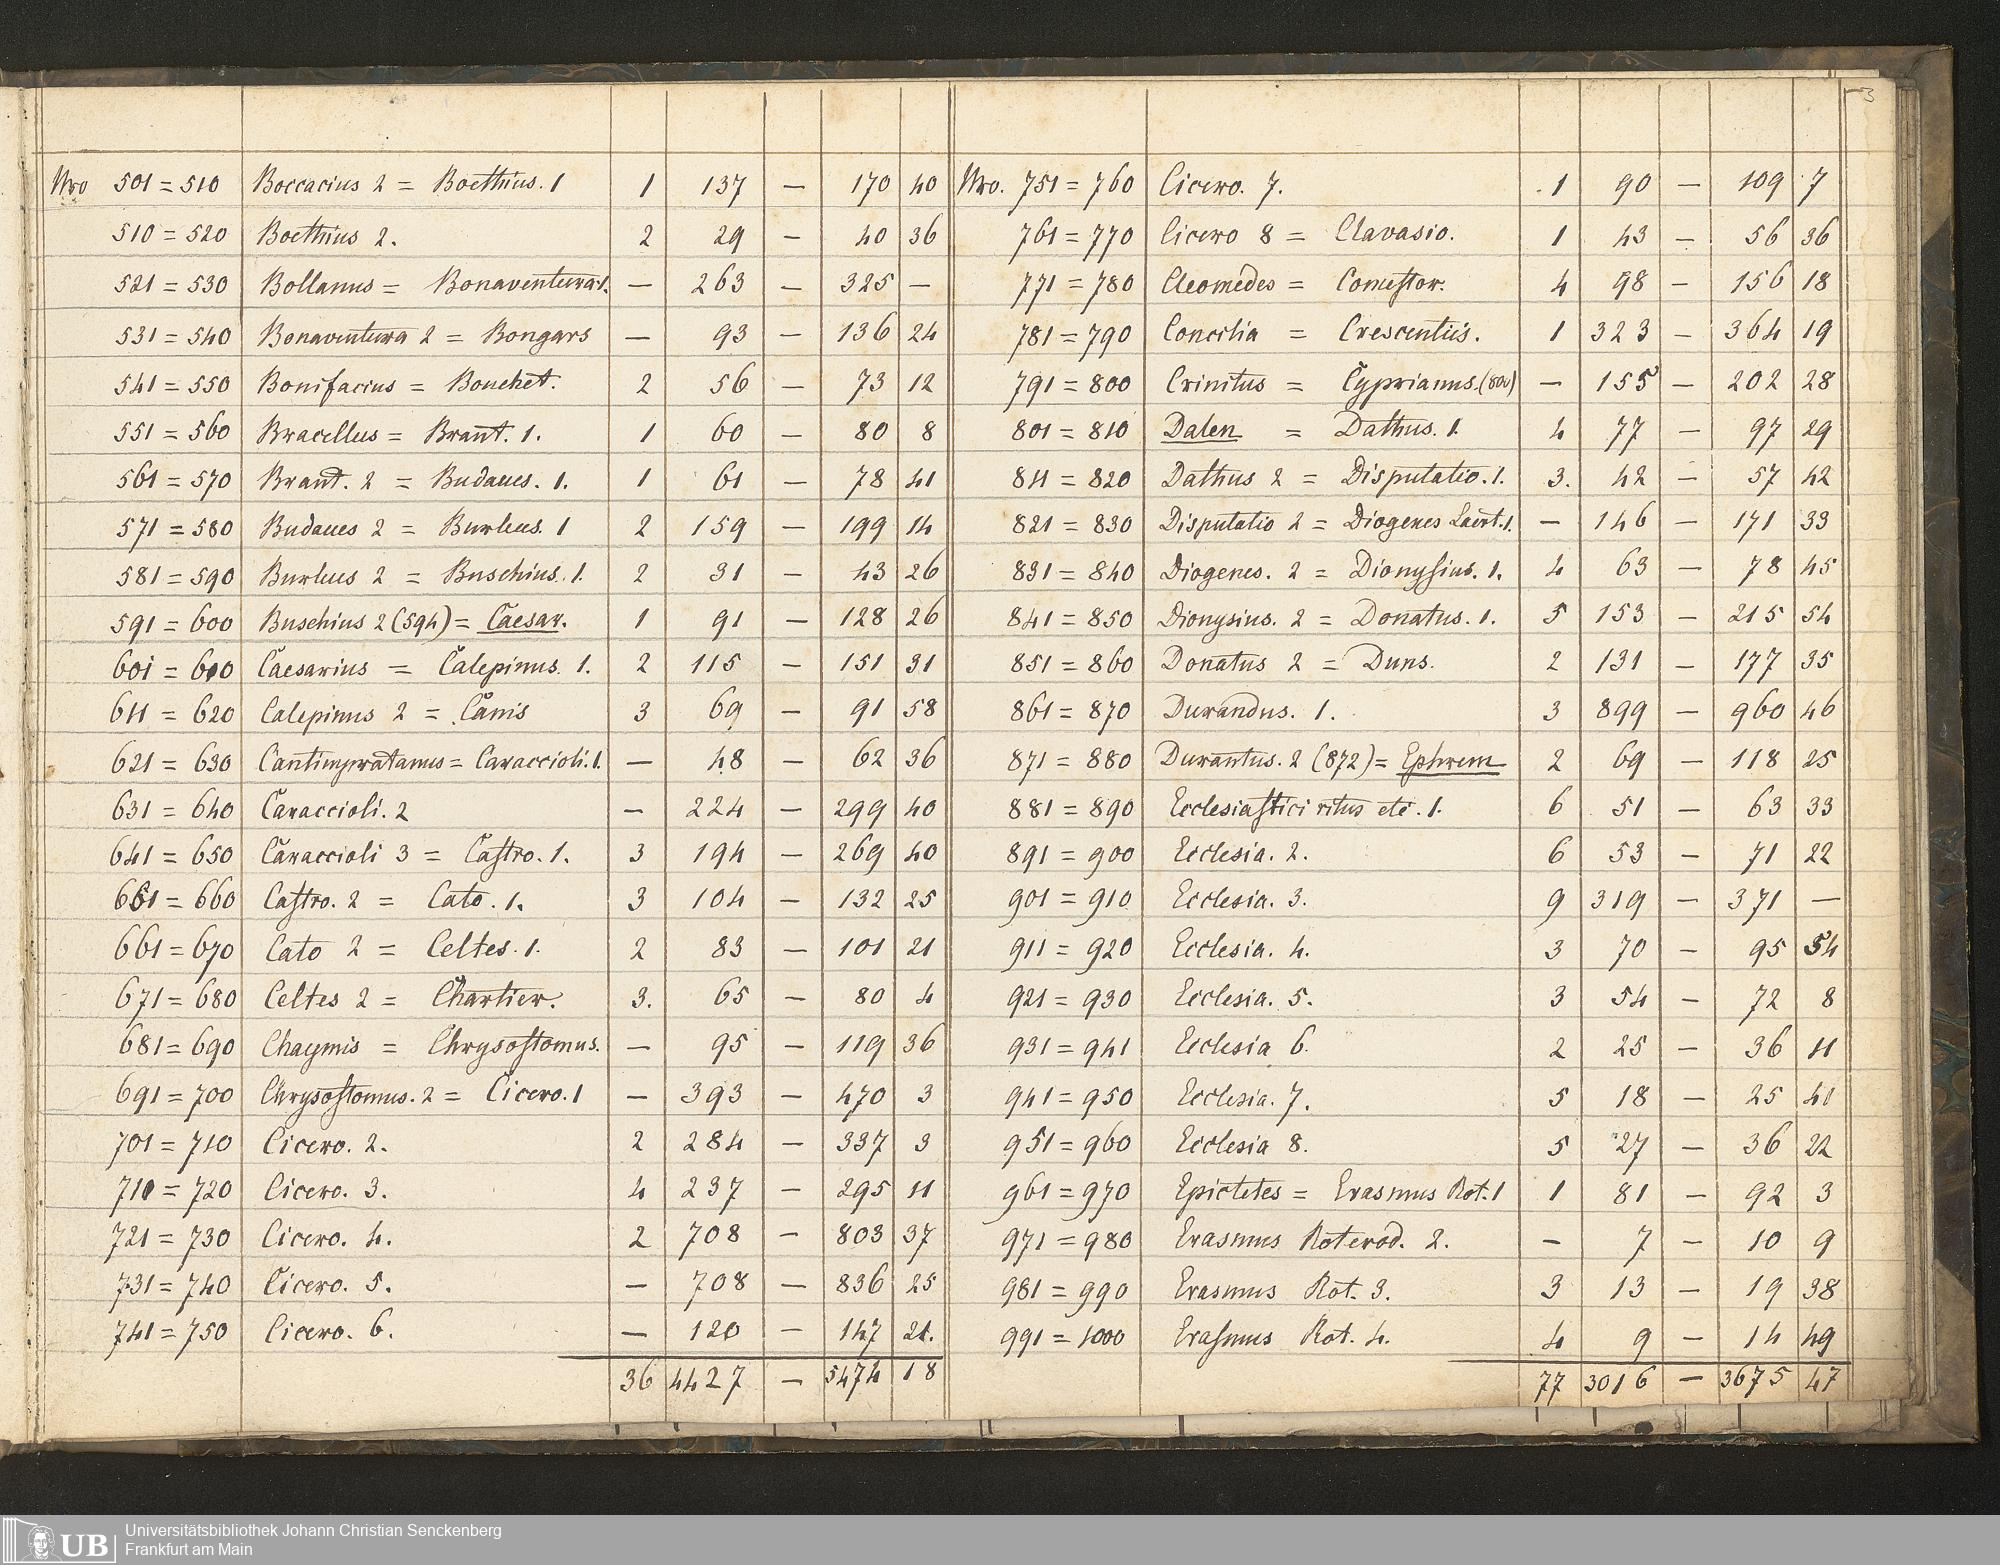 3
Nro 501 = 510 Boccacius 2 = Boethius. 1 1 137 — 170 40
510 = 520 Boethius 2. 2 29 — 40 36
521 = 530 Bollanus = Bonaventura. 1. — 263 — 325 —
531 = 540 Bonaventura 2 = Bongars — 93 — 136 24
541 = 550 Bonifacius = Bouchet. 2 56 — 73 12
551 = 560 Bracellus = Brant. 1. 1 60 — 80 8
561 = 570 Brant. 2 = Budaeus. 1. 1 61 — 78 41
571 = 580 Budaeus 2 = Burleus. 1 2 159 — 199 14
581 = 590 Burleus 2 = Buschius. 1. 2 31 — 43 26
591 = 600 Buschius 2 (594) = Caesar. 1 91 — 128 26
601 = 600 Caesarius = Calepinus. 1. 2 115 — 151 31
611 = 620 Calepinus 2 = Canis 3 69 — 91 58
621 = 630 Cantimpratanus = Caraccioli. 1. — 48 — 62 36
631 = 640 Caraccioli. 2 — 224 — 299 40
641 = 650 Caraccioli 3 = Castro. 1. 3 194 — 269 40
651 = 660 Castro. 2 = Cato. 1. 3 104 — 132 25
661 = 670 Cato 2 = Celtes. 1. 2 83 — 101 21
671 = 680 Celtes 2 = Chartier. 3. 65 — 80 4
681 = 690 Chaymis = Chrysostomus. — 95 — 119 36
691 = 700 Chrysostomus. 2 = Cicero. 1 — 393 — 470 3
701 = 710 Cicero. 2. 2 284 — 337 3
710 = 720 Cicero. 3. 4 237 — 295 11
721 = 730 Cicero. 4. 2 708 — 803 37
731 = 740 Cicero. 5. — 708 — 836 25
741 = 750 Cicero. 6. — 120 — 147 21.
36 4427 — 5474 18
Nro. 751 = 760 Cicero. 7. 1 90 — 109 7
761 = 770 Cicero 8 = Clavasio. 1 43 — 56 36
771 = 780 Cleomedes = Comestor. 4 98 — 156 18
781 = 790 Concilia = Crescentiis. 1 323 — 364 19
791 = 800 Crinitus = Cyprianus. (800) — 155 — 202 28
801 = 810 Dalen = Dathus. 1. 4 77 — 97 29
811 = 820 Dathus 2 = Disputatio. 1. 3. 42 — 57 42
821 = 830 Disputatio 2 = Diogenes Laert. 1. — 146 — 171 33
831 = 840 Diogenes. 2 = Dionysius. 1. 4 63 — 78 45
841 = 850 Dionysius. 2 = Donatus. 1. 5 153 — 215 54
851 = 860 Donatus 2 = Duns. 2 131 — 177 35
861 = 870 Durandus. 1. 3 899 — 960 46
871 = 880 Durantus. 2 (872) = Ephrem 2 69 — 118 25
881 = 890 Ecclesiastici ritus etc. 1. 6 51 — 63 33
891 = 900 Ecclesia. 2. 6 53 — 71 22
901 = 910 Ecclesia. 3. 9 319 — 371 —
911 = 920 Ecclesia. 4. 3 70 — 95 54
921 = 930 Ecclesia. 5. 3 54 — 72 8
931 = 941 Ecclesia 6. 2 25 — 36 11
941 = 950 Ecclesia. 7. 5 18 — 25 40
951 = 960 Ecclesia 8. 5 27 — 36 22
961 = 970 Epictetes = Erasmus Rot. 1 1 81 — 92 3
971 = 980 Erasmus Roterod. 2. — 7 — 10 9
981 = 990 Erasmus Rot. 3. 3 13 — 19 38
991 = 1000 Erasmus Rot. 4. 4 9 — 14 49
77 3016 — 3675 47
UB Universitätsbibliothek Johann Christian Senckenberg
Frankfurt am Main